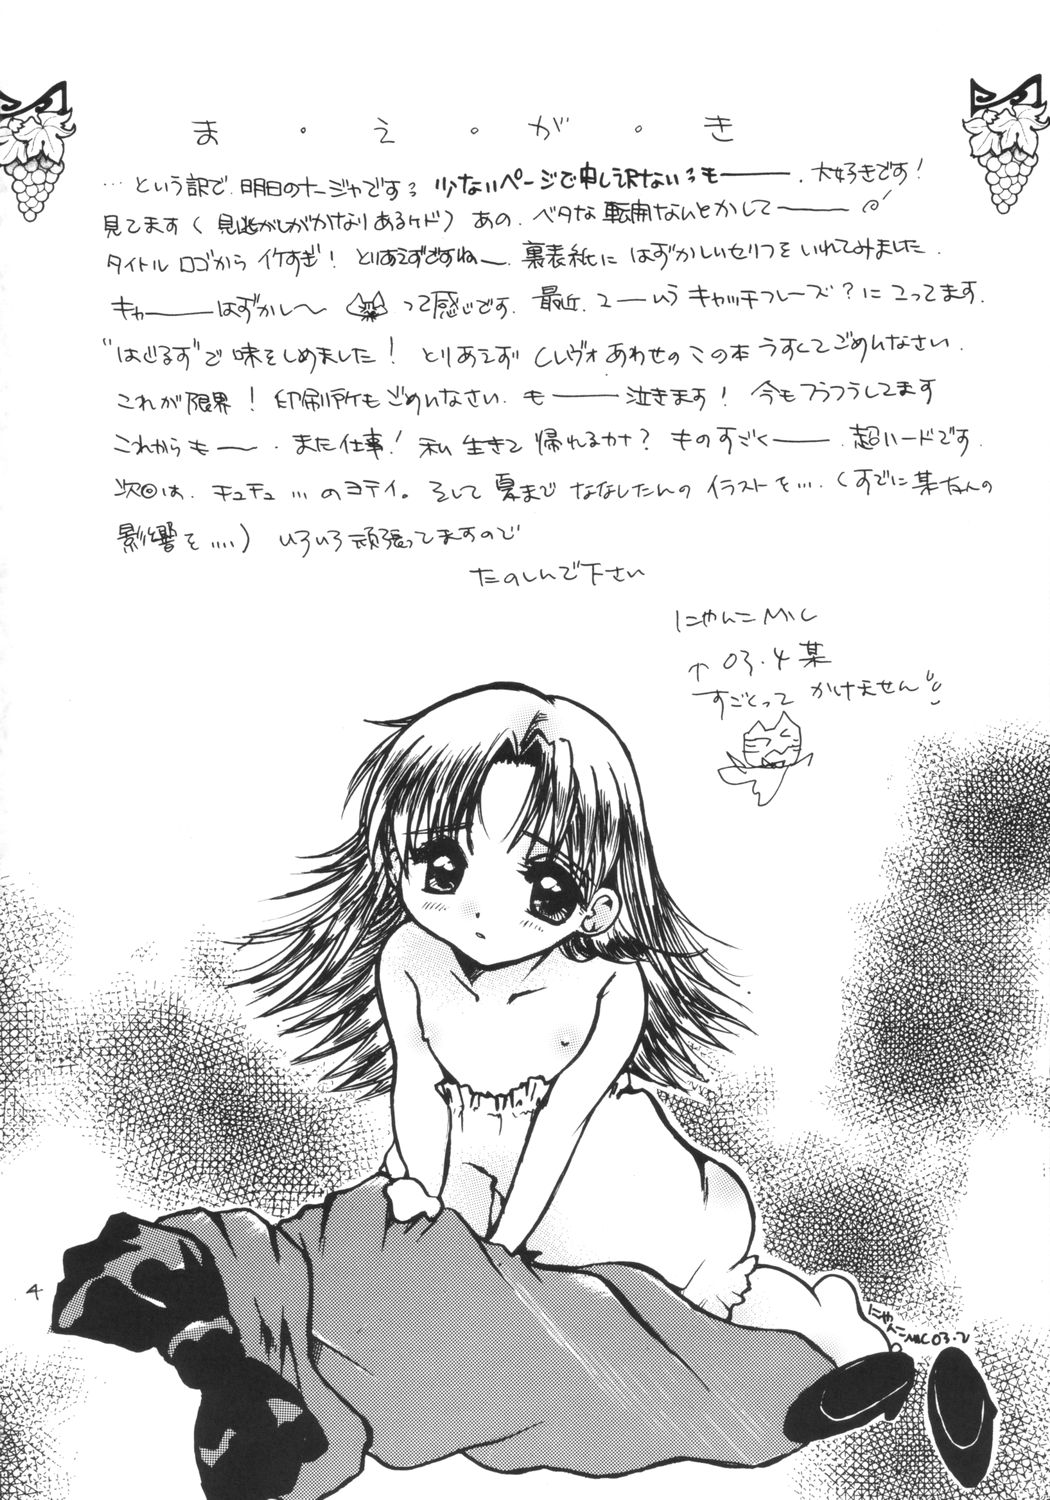 ま・え・が・き
…という訳で、明日のナージャです。少ないページで申し訳ない。もーーー、大好きです！
見てます(見逃がしがかなりあるケド)あの、ベタな転開ないとかしてーーー
タイトルロゴからイケすぎ！とりあえずですねー、裏表紙にはずかしいセリフをいれてみました。
キャーーーはずかし〜って感じです。最近、こーいうキャッチフレーズ？にこってます。
"はじるす"で味をしめました！とりあえずCレヴォあわせのこの本うすくてごめんなさい。
これが限界！印刷所もごめんなさい。もーーー泣きます！今もフラフラしてます
これからもーー、また仕事！私生きて帰れるカナ？ものすごくーーー、超ハードです。
次回は、チュチュ…のヨテイ。そして夏までななしたんのイラストを…、(すでに某ちゃんの
影響を….)いろいろ頑張ってますので
たのしんで下さい
にゃんこMIC
↑03.4某
すごとって かけません
4
にゃんこMIC03.2